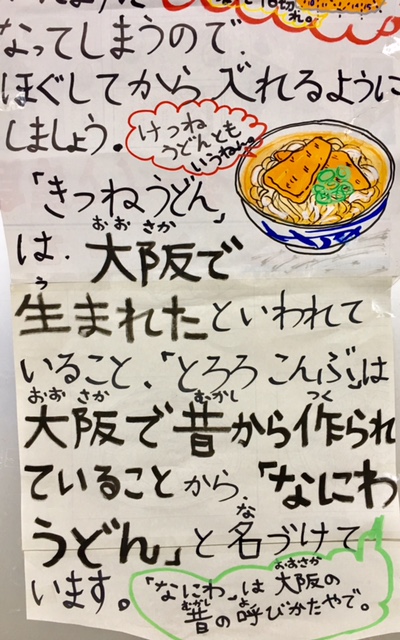 なってしまうので、
ほぐしてから入れるように
しましょう。
けつね
うどんとも
いうねん。
「きつねうどん」
は、大阪で
おおさか
生まれたといわれて
う
いること、「とろろこんぶ」は
大阪で昔から作られ
おおさか むかし つく
ていることから、「なにわ
うどん」と名づけて
な
います。
「なにわ」は大阪の
おおさか
昔の呼びかたやで。
むかし よ